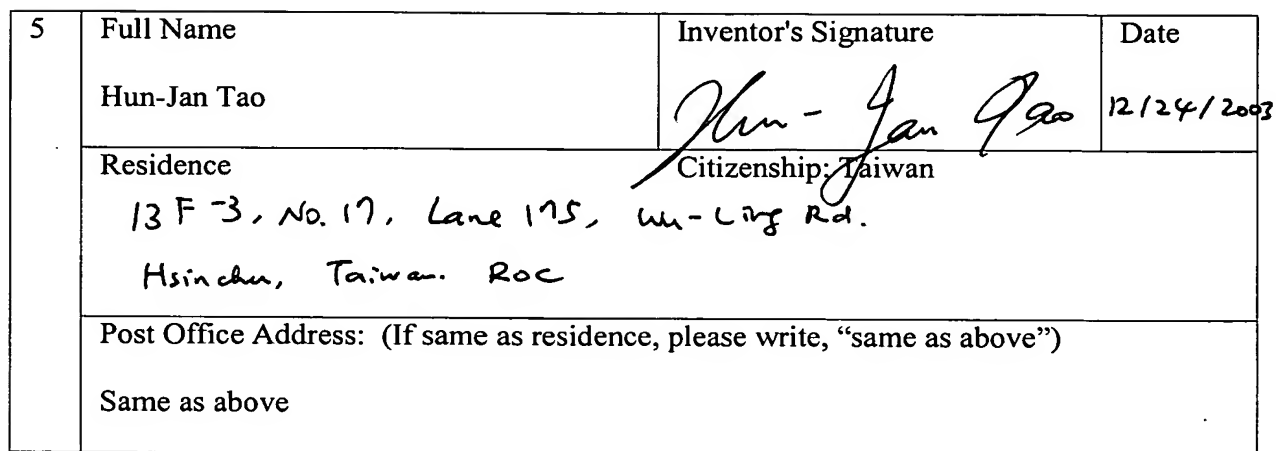 5 Full Name Inventor's Signature Date
Hun-Jan Tao Hun-Jan Tao 12/24/2003
Residence Citizenship: Taiwan
13F-3, No. 17, Lane 175, Wu-Ling Rd.
Hsinchu, Taiwan. ROC
Post Office Address: (If same as residence, please write, “same as above”)
Same as above